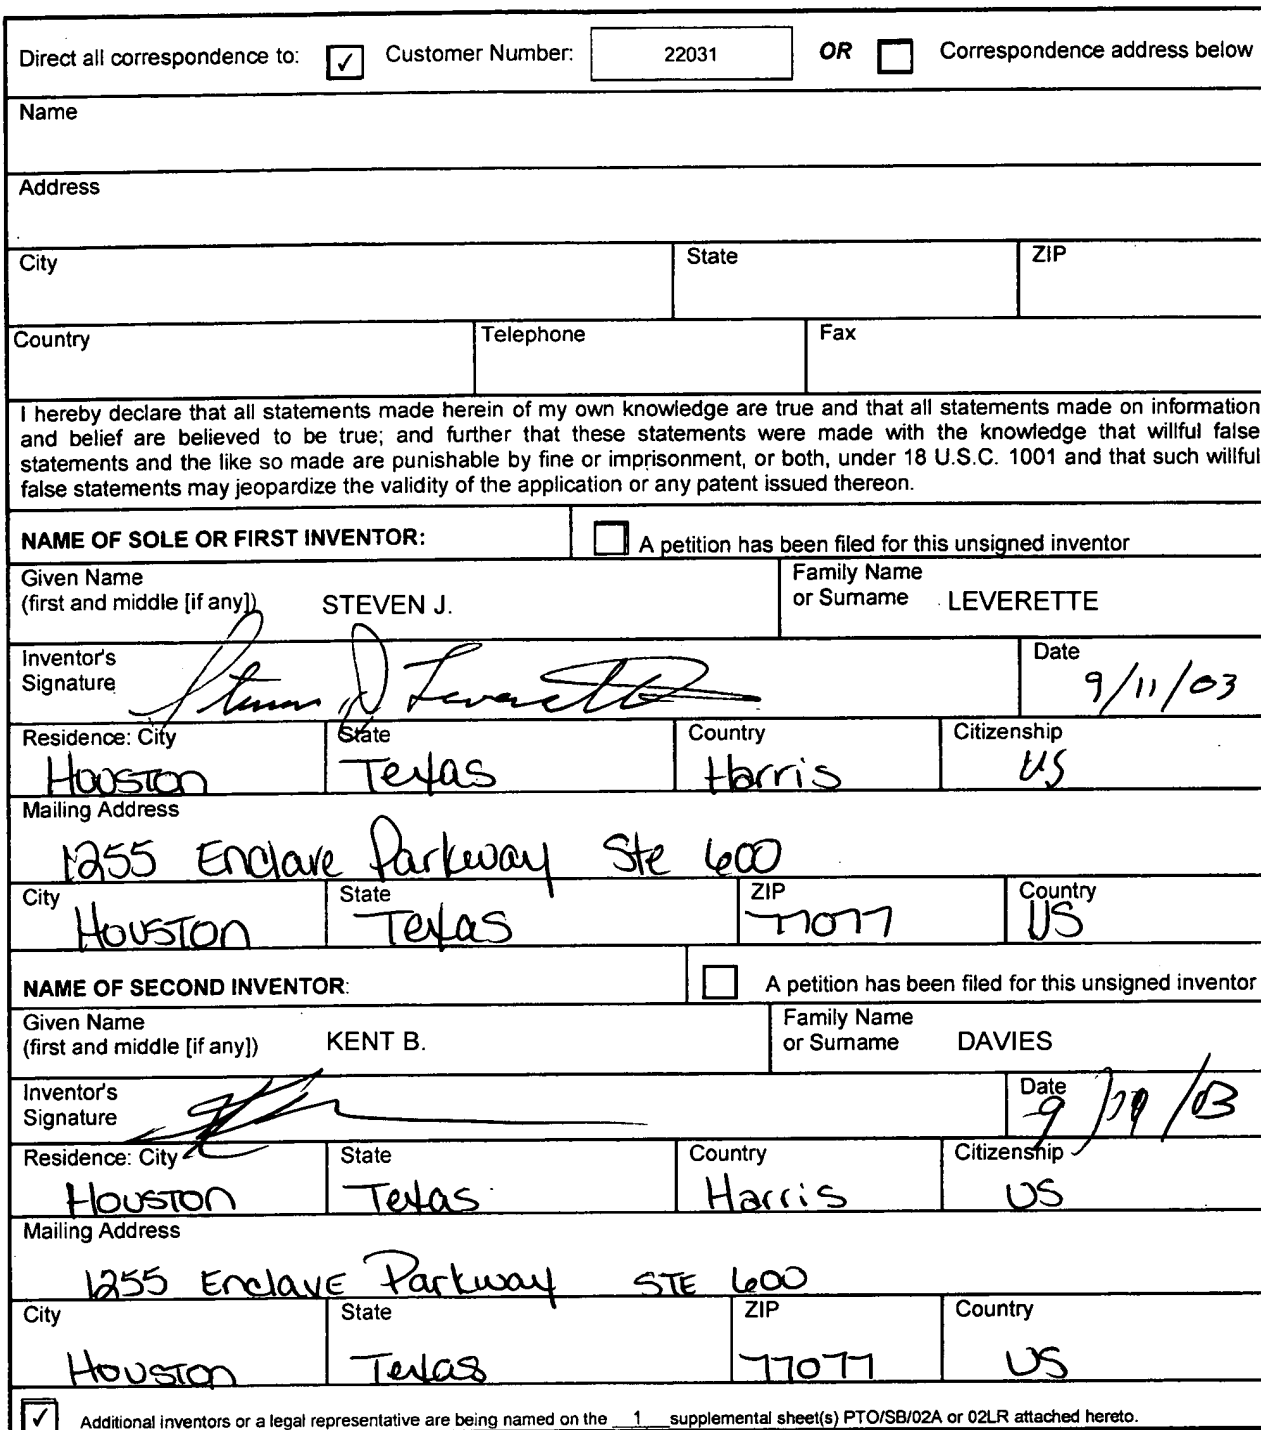 Direct all correspondence to: ✓ Customer Number: 22031 OR Correspondence address below
Name
Address
City State ZIP
Country Telephone Fax
I hereby declare that all statements made herein of my own knowledge are true and that all statements made on information
and belief are believed to be true; and further that these statements were made with the knowledge that willful false
statements and the like so made are punishable by fine or imprisonment, or both, under 18 U.S.C. 1001 and that such willful
false statements may jeopardize the validity of the application or any patent issued thereon.
NAME OF SOLE OR FIRST INVENTOR: A petition has been filed for this unsigned inventor
Given Name Family Name
(first and middle [if any]) STEVEN J. or Surname LEVERETTE
Inventor's Date
Signature Steven J Leverette 9/11/03
Residence: City State Country Citizenship
Houston Texas Harris US
Mailing Address
1255 Enclave Parkway Ste 600
City State ZIP Country
Houston Texas 77077 US
NAME OF SECOND INVENTOR: A petition has been filed for this unsigned inventor
Given Name Family Name
(first and middle [if any]) KENT B. or Surname DAVIES
Inventor's Date
Signature
Residence: City State Country Citizenship
Houston Texas Harris US
Mailing Address
1255 Enclave Parkway STE 600
City State ZIP Country
Houston Texas 77077 US
✓ Additional inventors or a legal representative are being named on the 1 supplemental sheet(s) PTO/SB/02A or 02LR attached hereto.